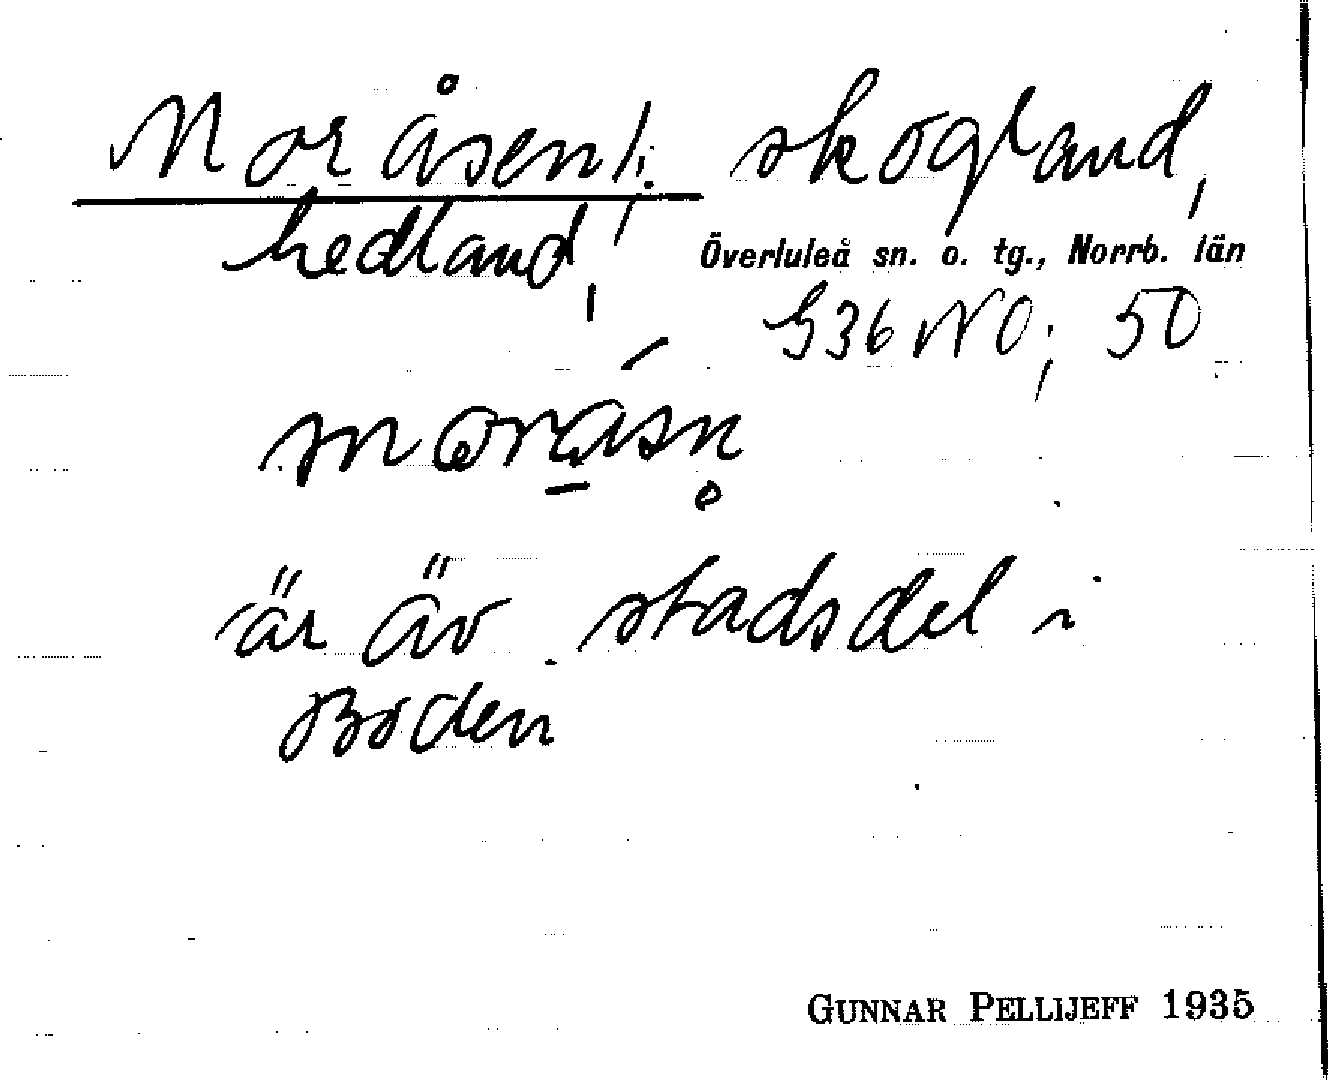 Moråsen/: skogland,
hedland,
Överluleå sn. o. tg., Norrb. län
G36 NO; 50
är äv stadsdel i
Boden
GUNNAR PELLIJEFF 1935